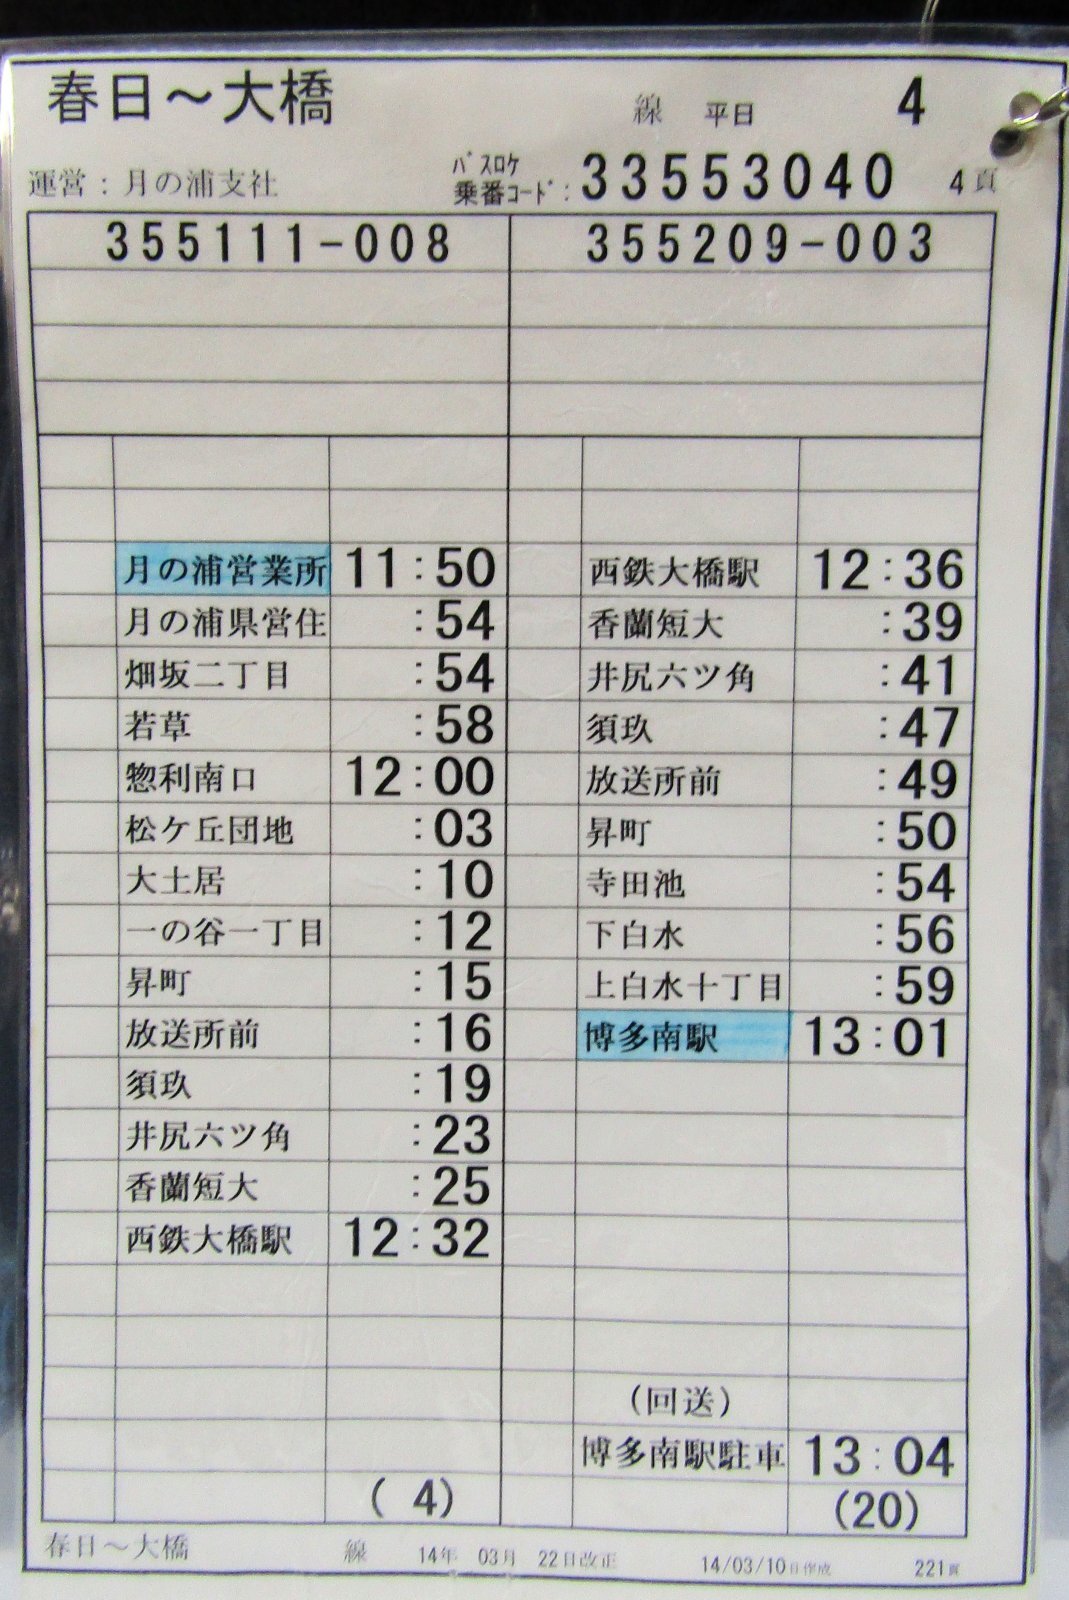 春日～大橋 線 平日 4
運営：月の浦支社 バスロケ 乗番コード：33553040 4頁
355111-008 355209-003
月の浦営業所 11:50 西鉄大橋駅 12:36
月の浦県営住 :54 香蘭短大 :39
畑坂二丁目 :54 井尻六ツ角 :41
若草 :58 須玖 :47
惣利南口 12:00 放送所前 :49
松ケ丘団地 :03 昇町 :50
大土居 :10 寺田池 :54
一の谷一丁目 :12 下白水 :56
昇町 :15 上白水十丁目 :59
放送所前 :16 博多南駅 13:01
須玖 :19
井尻六ツ角 :23
香蘭短大 :25
西鉄大橋駅 12:32
(回送)
博多南駅駐車 13:04
( 4) (20)
春日～大橋 線 14年 03月 22日改正 14/03/10日作成 221頁